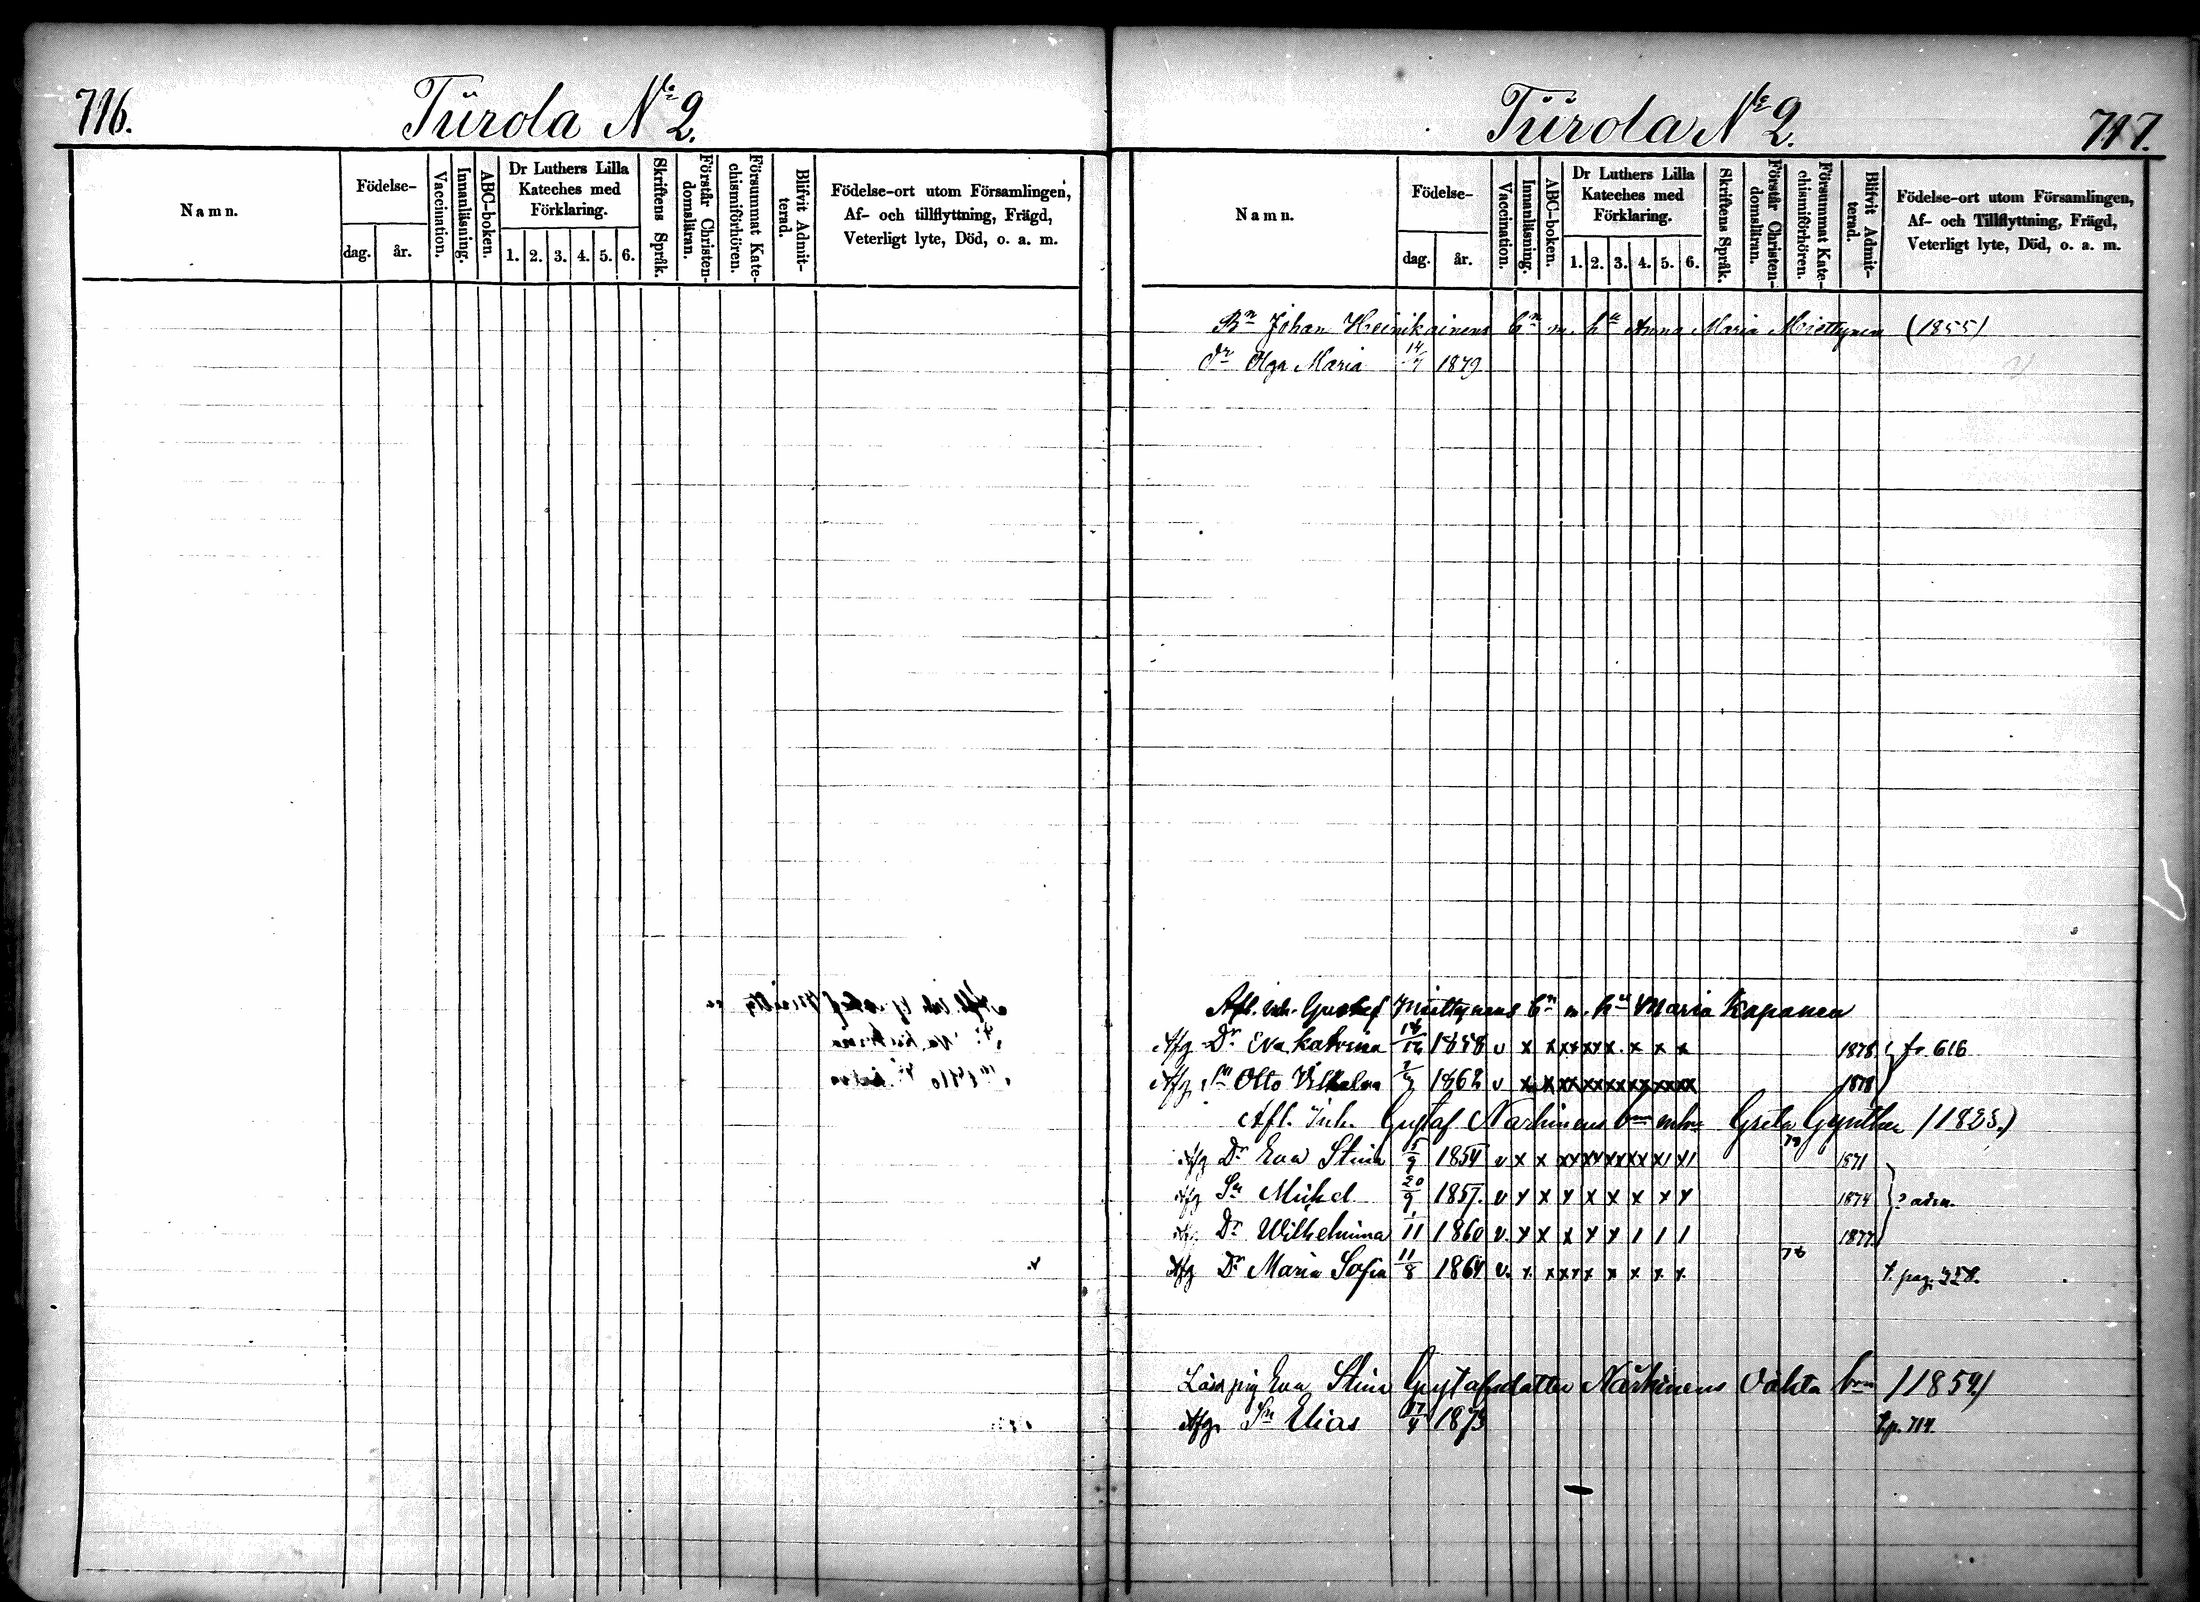 716.
Tiirola No 2.
Namn.
Födelse-
dag. år.
Vaccination.
Innanläsning.
ABC-boken.
Dr Luthers Lilla
Kateches med
Förklaring.
1. 2. 3. 4. 5. 6.
Skriftens Språk.
Förstår Christen-
domsläran.
Försummat Kate-
chismiförhören.
Blifvit Admit-
terad.
Födelse-ort utom Församlingen,
Af- och tillflyttning, Frägd,
Veterligt lyte, Död, o. a. m.
Tiirola No 2.
717.
Namn.
Födelse-
dag. år.
Vaccination.
Innanläsning.
ABC-boken.
Dr Luthers Lilla
Kateches med
Förklaring.
1. 2. 3. 4. 5. 6.
Skriftens Språk.
Förstår Christen-
domsläran.
Försummat Kate-
chismiförhören.
Blifvit Admit-
terad.
Födelse-ort utom Församlingen,
Af- och Tillflyttning, Frägd,
Veterligt lyte, Död, o. a. m.
Bn Johan Heinikainens bn m. hu Anna Maria Miettynen (1855)
Dr Olga Maria 1879
Afl. inh. Gustaf Miettynens bn m. hu Maria Kaponen
Afg Dr Eva Katrina 1858 v x x x x x x x x 1878 fr. 616
Afg Sn Otto Vilhelm 1862 v x x x x x x x x 1878
Afl. Inh. Gustaf Närhinens bn m hu Greta Gynther (1825.)
Afg Dr Eva Stina 1854 v x x x x x x x x 1871
Afg Sn Michel 20/9 1857. v x x x x x x x x 1874
Dr Wilhelmina 11 1860 v. x x x x x / / / 1877
Afg Dr Maria Sofia 11/8 1864 v. x x x x x x x x 78 t. pag. 328.
Lösa pig Eva Stina Gustafsdotter Närhinens oäkta bn (1854)
Afg. Sn Elias 1873 t. p. 714.